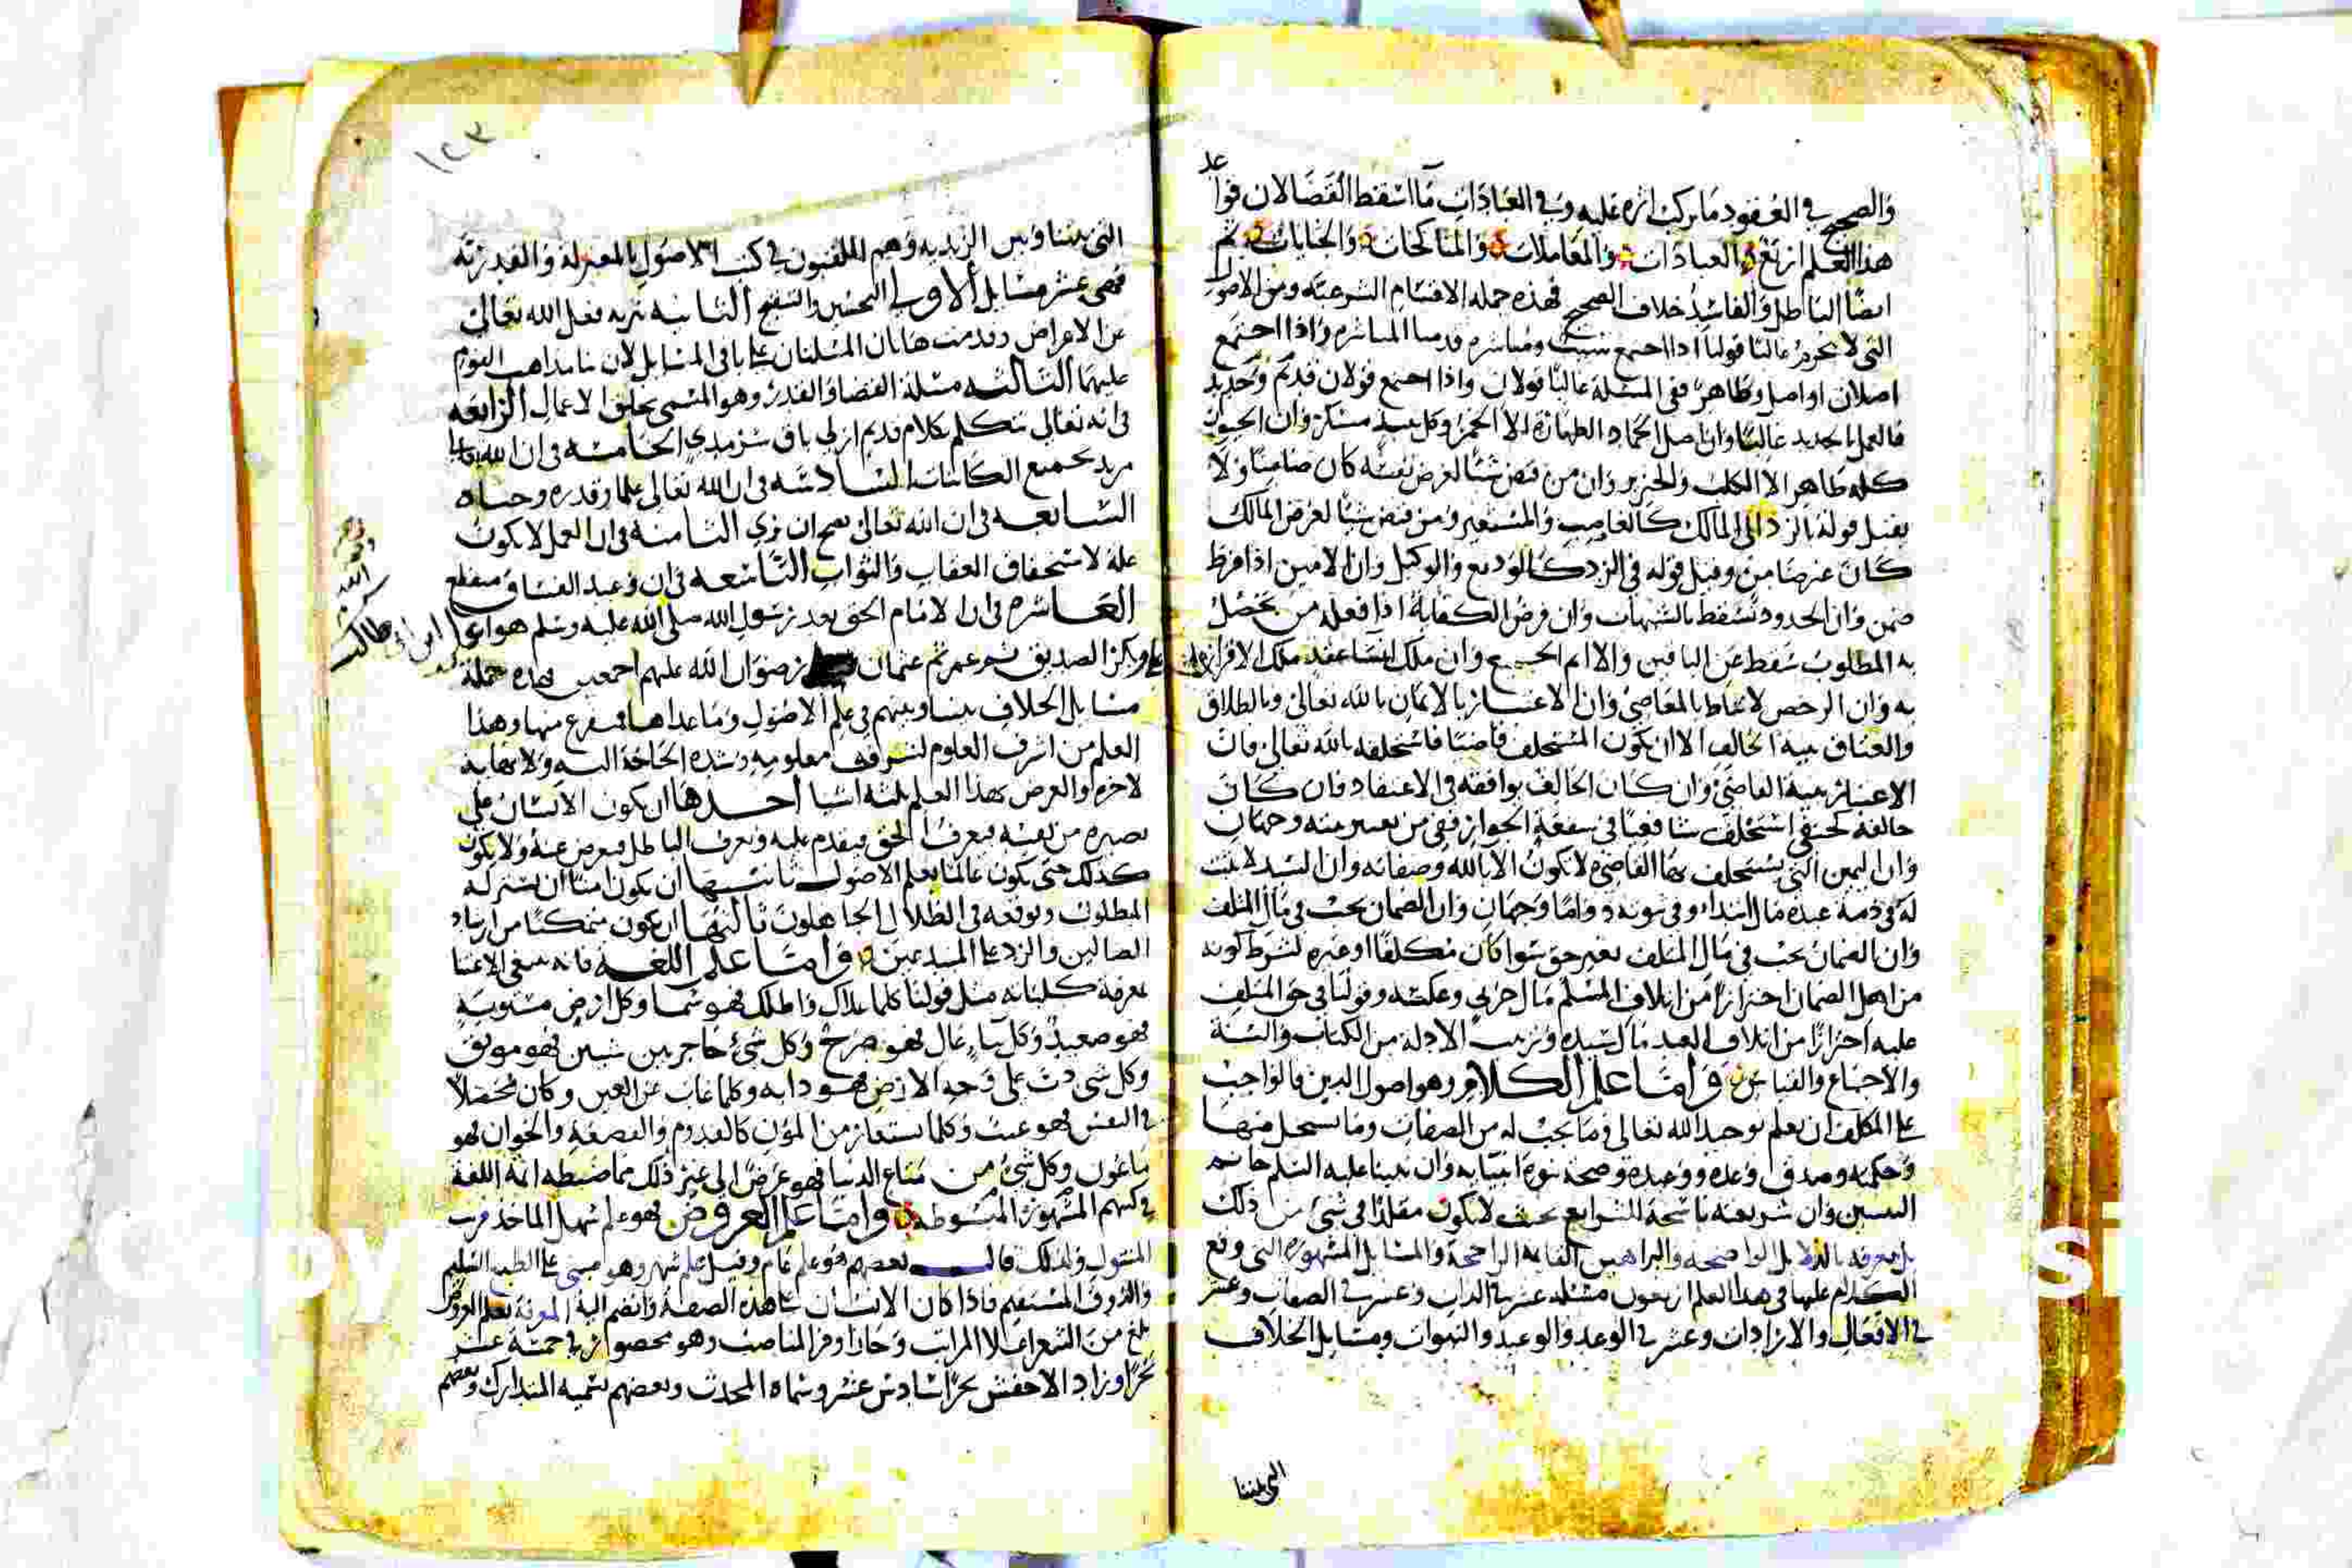 والصحيح في العقود ما تركب اثره عليه وفي العبادات ما اسقط القضا لان قواعد
هذا العلم اربع العبادات والمعاملات والمناكحات والجنايات ثم
ايضًا الباطل والفاسد خلاف الصحيح فهذه جمله الاقسام الشرعيه ومن الاصول
التي لا تخرم غالبًا قولنا اذا اجتمع سبب ومباشره قدمنا المباشره واذا اجتمع
اصلان او اصل وظاهر ففي المسئلة غالبًا قولان واذا اجتمع قولان قديم وجديد
فالعمل بالجديد غالبًا وان اصل الجماد الطهارة الا الخمر وكل نبيذ مسكر وان الحيوان
كله طاهر الا الكلب والخنزير وان من قبض شيئًا لغرض نفسه كان ضامنًا ولا
يقبل قوله بالرد الى المالك كالغاصب والمستعير ومن قبض شيئًا لغرض المالك
كان غير ضامن وقبل قوله في الرد كالوديع والوكيل وان الامين اذا فرط
ضمن وان الحدود تسقط بالشبهات وان فرض الكفاية اذا فعله من يحصل
به المطلوب سقط عن الباقين والا اثم الجميع وان ملك انشا عقد ملك الاقرار
به وان الرخص لا تناط بالمعاصي وان الاعتبار بالايمان بالله تعالى وبالطلاق
والعتاق بنية الحالف الا ان يكون المستحلف قاضيًا فاستحلفه بالله تعالى فان
الاعتبار بنية القاضي وان كان الحالف يوافقه في الاعتقاد فان كان
خالفه كحنفي استحلف شافعيًا في شفعة الجوار ففي من يعتبر نيته وجهان
وان اليمين التي يستحلف بها القاضي لا تكون الا بالله وصفاته وان السيد لا يثبت
له في ذمة عبده مال ابتداء وفي ثبوته دوامًا وجهان وان الضمان يجب في مال المتلف
وان الضمان يجب في مال المتلف بغير حق سوا كان مكلفًا او غيره لشرط كونه
من اهل الضمان احترازًا من اتلاف المسلم مال حربي وعكسه وقولنا في حق المتلف
عليه احترازًا من اتلاف العبد مال سيده وترتيب الادلة من الكتاب والسنة
والاجماع والقياس واما علم الكلام وهو اصول الدين فالواجب
على المكلف ان يعلم توحيد الله تعالى وما يجب له من الصفات وما يستحيل منها
وحكمه وصدق وعده ووعيده وصحة نبوة انبيائه وان نبينا عليه السلم خاتم
النبيين وان شريعته ناسخة للشرايع بحيث لا يكون مقلدًا في شي من ذلك
بل يعرفه بالدلايل الواضحه والبراهين القاطعة الراجحة والمسايل المشهوره التي وقع
الكلام عليها في هذا العلم اربعون مسئله عشر في الذات وعشر في الصفات وعشر
في الافعال والارادات وعشر في الوعد والوعيد والنبوات ومسايل الخلاف
التي بيننا
١٢٣
التي بيننا وبين الزيديه وهم الملقبون في كتب الاصول بالمعتزلة والقدرية
فهي عشر مسايل الاولى التحسين والتقبيح الثانيه تنزيه فعل الله تعالى
عن الاغراض وقدمت هاتان المسئلتان على باقي المسايل لان بنا مذاهب القوم
عليهما الثالثه مسئلة القضا والقدر وهو المسمى بخلق الاعمال الرابعه
في انه تعالى متكلم بكلام قديم ازلي باق سرمدي الخامسه في ان الله تعالى
مريد لجميع الكاينات السادسه في ان الله تعالى علما وقدره وحياه
السابعه في ان الله تعالى يصح ان يرى الثامنة في ان العمل لا يكون
علة لاستحقاق العقاب والثواب التاسعه في ان وعيد الفساق منقطع
العاشره في ان الامام الحق بعد رسول الله صلى الله عليه وسلم هو ابو
بكر الصديق ثم عمر ثم عثمان رضوان الله عليهم اجمعين فهذه جملة
مسايل الخلاف بيننا وبينهم في علم الاصول وما عداها فمتفرع منها وهذا
العلم من اشرف العلوم لشرف معلومه وشدة الحاجة اليه ولا نهاية
لاخره والغرض بهذا العلم ثلثه اشيا احدها ان يكون الانسان على
بصيره من نفسه فيعرف الحق فيقدم عليه ويعرف الباطل فيعرض عنه ولا يكون
كذلك حتى يكون عالمًا بعلم الاصول ثانيها ان يكون امنًا ان يستزله
المبطلون ويوقعه في الضلال الجاهلون ثالثها ان يكون متمكنًا من ارشاد
الضالين والرد على المبتدعين واما علم اللغه فانه ينبغي الاعتنا
بمعرفة كلياته مثل قولنا كلما علاك واظلك فهو سما وكل ارض مستوية
فهو صعيد وكل بناء عال فهو صرح وكل شي حاجز بين شيين فهو موبق
وكل شي دب على وجه الارض فهو دابه وكلما غاب عن العين وكان محصلًا
في النفس فهو غيب وكلما يستعار من المؤن كالقدوم والقصعة والخوان فهو
ماعون وكل شي من متاع الدنيا فهو عرض الى غير ذلك مما ضبطه ايمة اللغة
في كتبهم المشهورة المبسوطه واما علم العروض فهو علم سهل الماخذ قريب
المتناول ولذلك قال بعضهم هو علم عام وقيل علم شهر وهو مبني على الطبع السليم
والذوق المستقيم فاذا كان الانسان على هذه الصفة وانضم اليه المعرفة بعلم العروض
بلغ من الشعر اعلا المراتب وحاز اوفر المناصب وهو محصور في خمسة عشر
بحرًا وزاد الاخفش بحرًا سادس عشر وسماه المحدث وبعضهم يسميه المتدارك وبعضهم